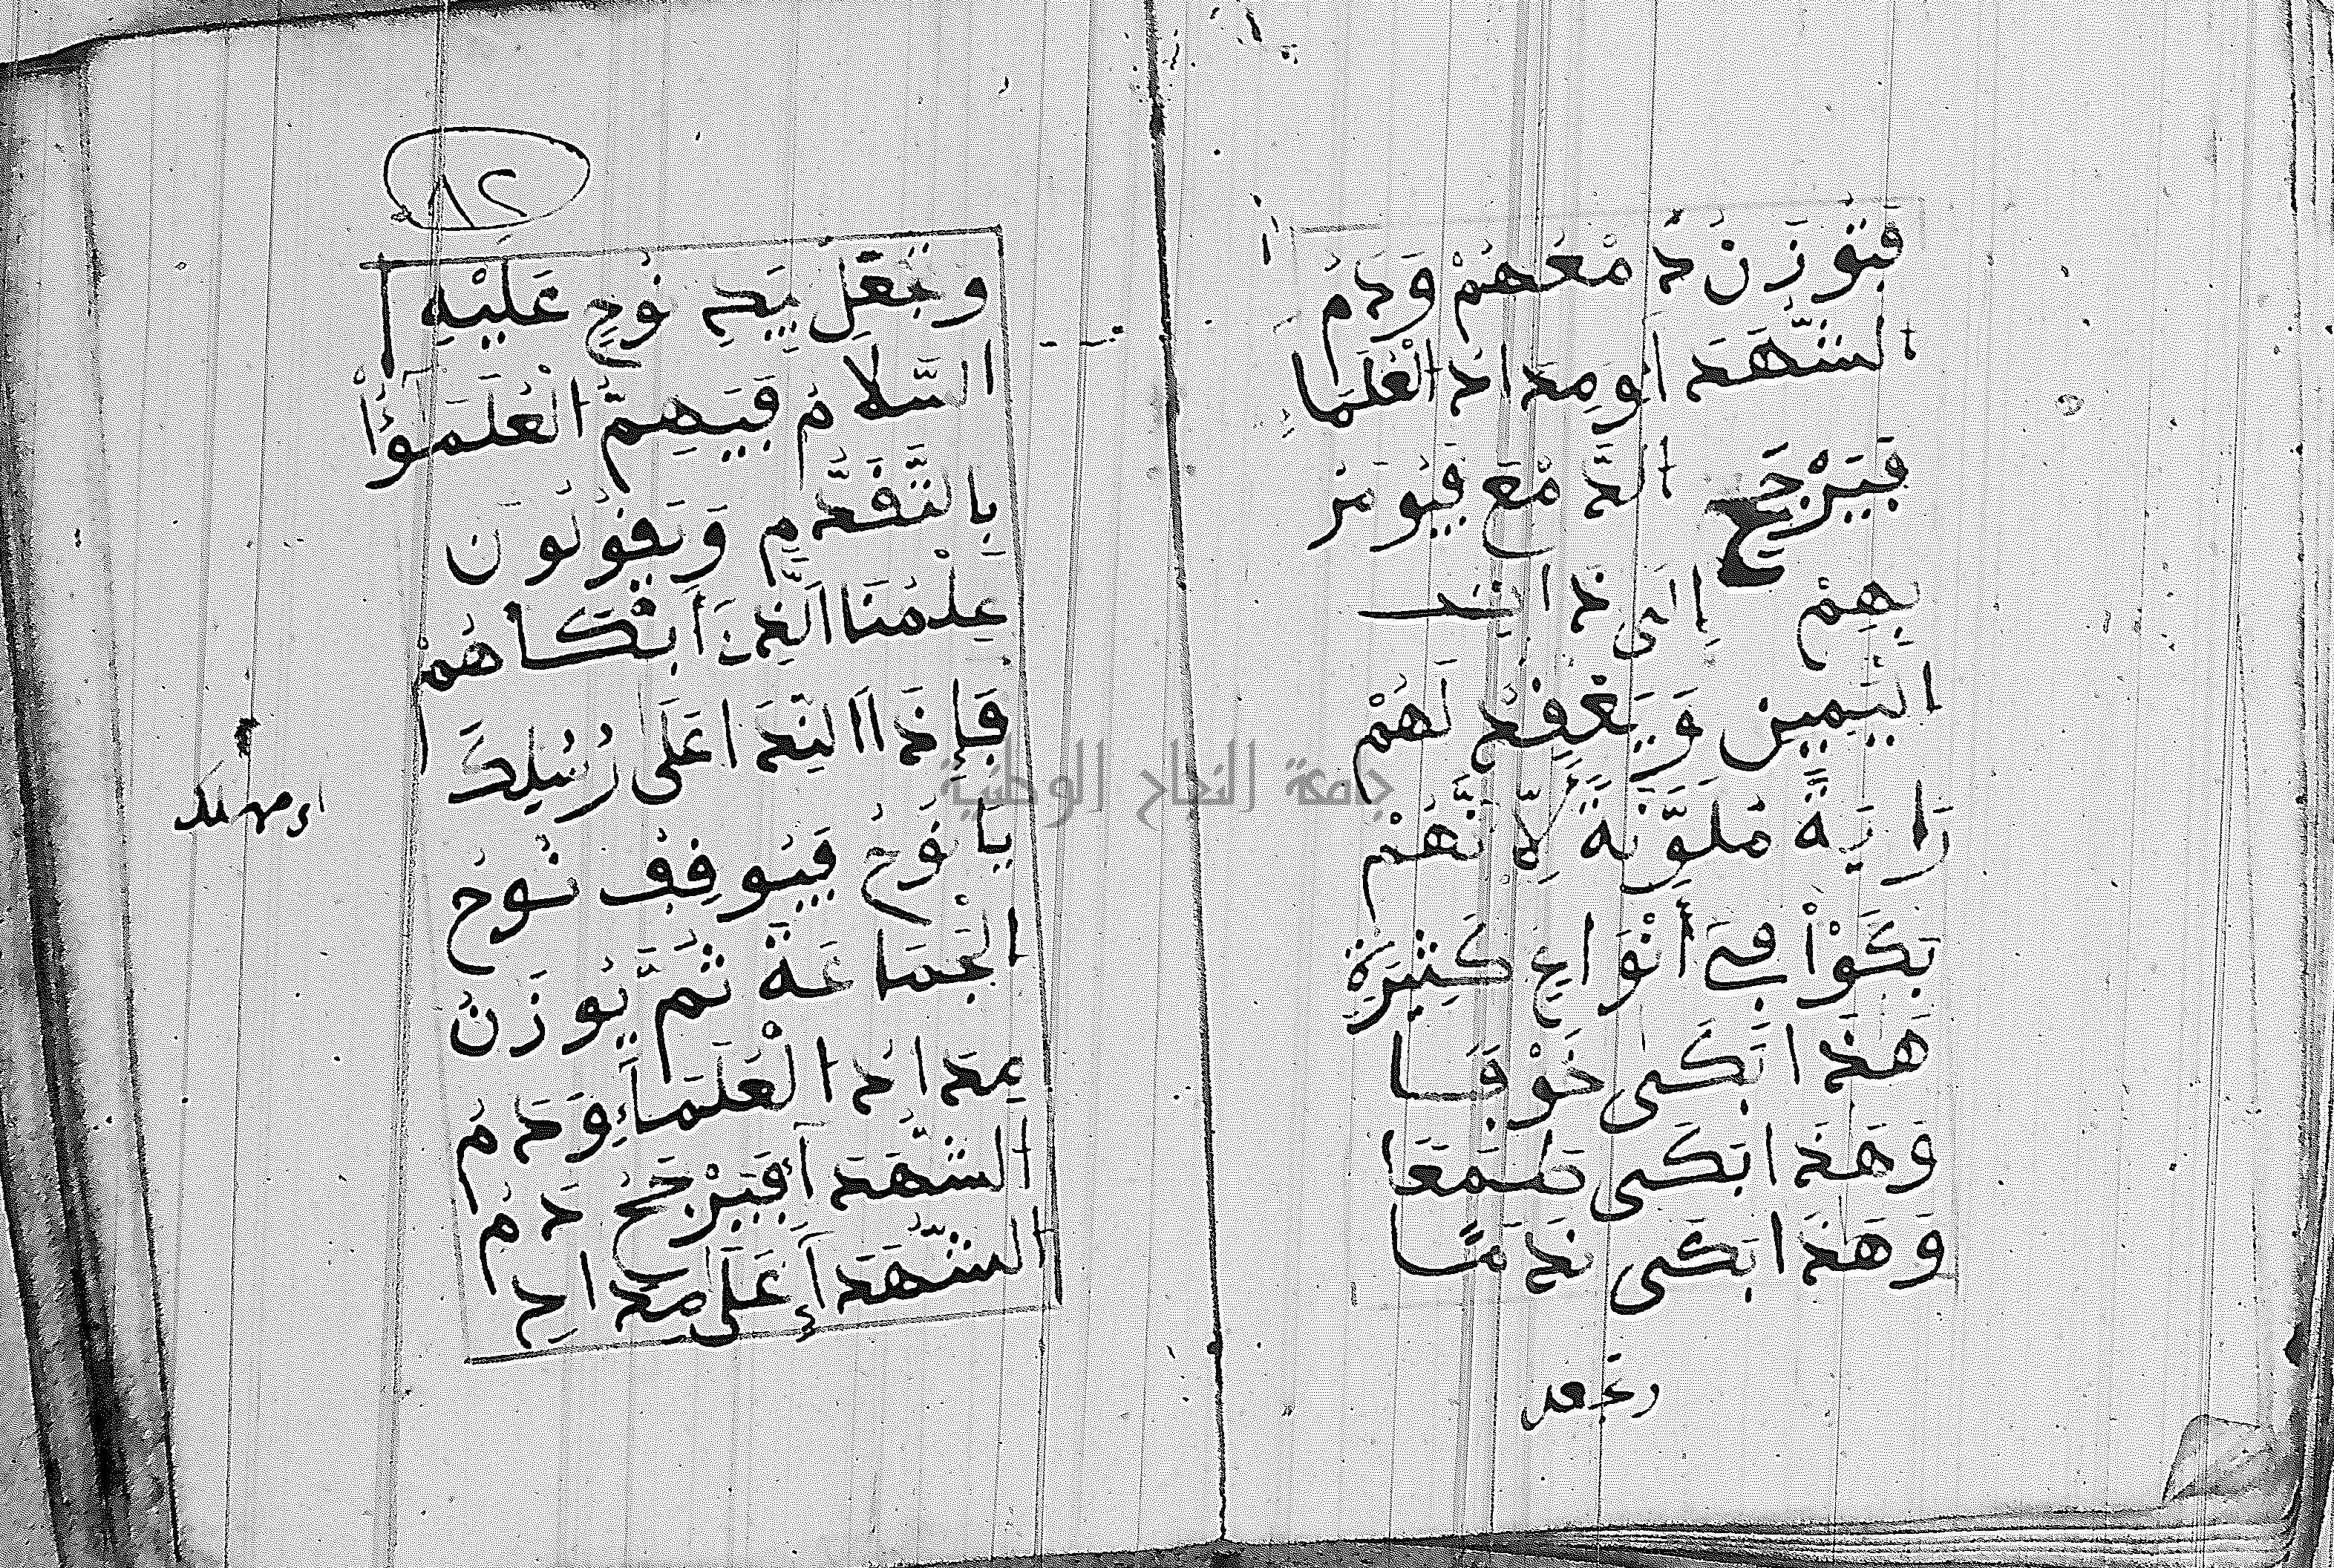 فَتُوزَنُ دُمْعُهُمْ وَدَمُ
الشُّهَدَ أَوِمِدَادُ الْعُلَمَا
فَيَرْجَحُ الدَّمْعَ فَيُومَرُ
بِهِمْ إِلَى ذَاتِ
الْيَمِينِ وَيَعْقِدُ لَهُمْ
رَايَةً مُلَوَّنَةً لِأَنَّهُمْ
بَكَوْا فِي أَنْوَاعٍ كَثِيرَةٍ
هَذَا بَكَى خَوْفًا
وَهَذَا بَكَى طَمَعًا
وَهَذَا بَكَى نَدَمًا
وتجعل
١٢
وَتُجْعَلُ بِيَدِ نُوحٍ عَلَيْهِ
السَّلَامُ فَيَهِمُّ الْعُلَمَؤُاْ
بِالتَّقَدُّمِ وَيَقُولُونَ
عِلْمُنَا الَّذِي أَبْكَاهُمْ
فَإِذَا النِّدَا عَلَى رُسُلِكَ
يَا نُوحُ فَيُوقِفُ نُوحُ
الْجَمَاعَةَ ثُمَّ يُوزَنُ
مِدَادُ الْعُلَمَاءِ وَدَمُ
الشُّهَدَآءِ فَيَرْجَحُ دَمُ
الشُّهَدَآءِ عَلَى مِدَادِ
جامعة النجاح الوطنية